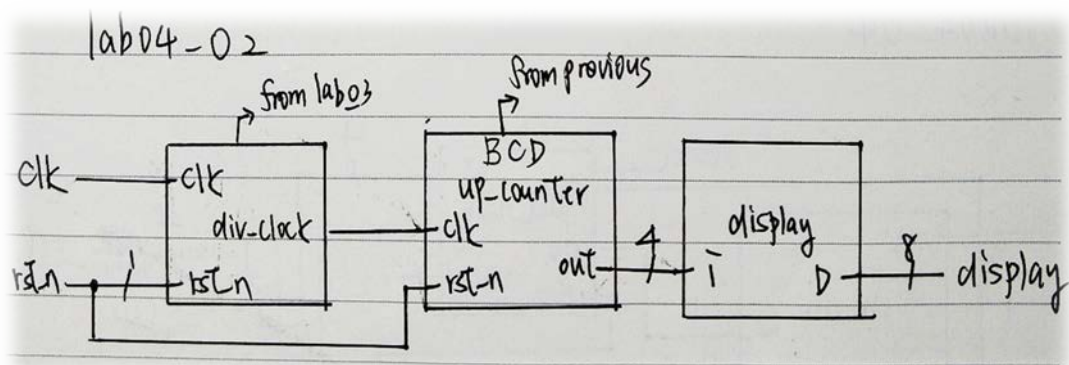 lab04-02
from lab03
from previous
clk
clk
div_clock
rst_n
1
rst_n
BCD
up_counter
clk
rst_n
out
4
display
i
D
8
display